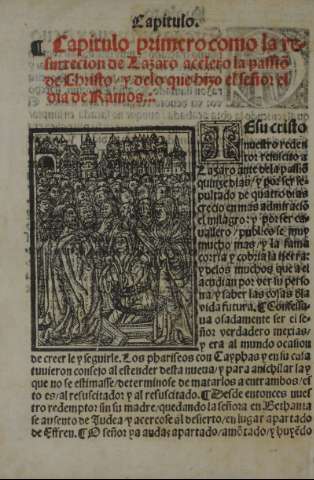 Capitulo.
¶ Capitulo primero como la re
surrecion de Lazaro acelero la passiõ
de Christo y delo que hizo el señor el
dia de Ramos.
IEsu cristo
nuestro reden
tor resuscito a
Lazaro ante dela passiõ
quinze dias / y por ser se
pultado de quatro dias
crecio en mas admiraciõ
el milagro: y por ser ca
uallero / publicose muy
mucho mas / y la fama
corria y cobria la tierra:
y delos muchos que a el
acudian por ver su perso
na / y saber las cosas dla
vida futura. ¶ Confessa
ua osadamente ser el se
ñor verdadero mexias /
y era al mundo ocasion
de creer le y seguirle. Los phariseos con Cayphas y en su casa
tuuieron consejo al estender desta nueua / y para anichilar la y
que no se estimasse / determinose de matarlos a entrambos / es
to es / al resuscitador y al resuscitado. ¶ Desde entonces nues
tro redemptor sin su madre / quedando la señora en Bethania
se ausento de Iudea y acercose al desierto / en lugar apartado
de Effren. ¶ O señor ya auda / apartado / amõtado / y huyẽdo